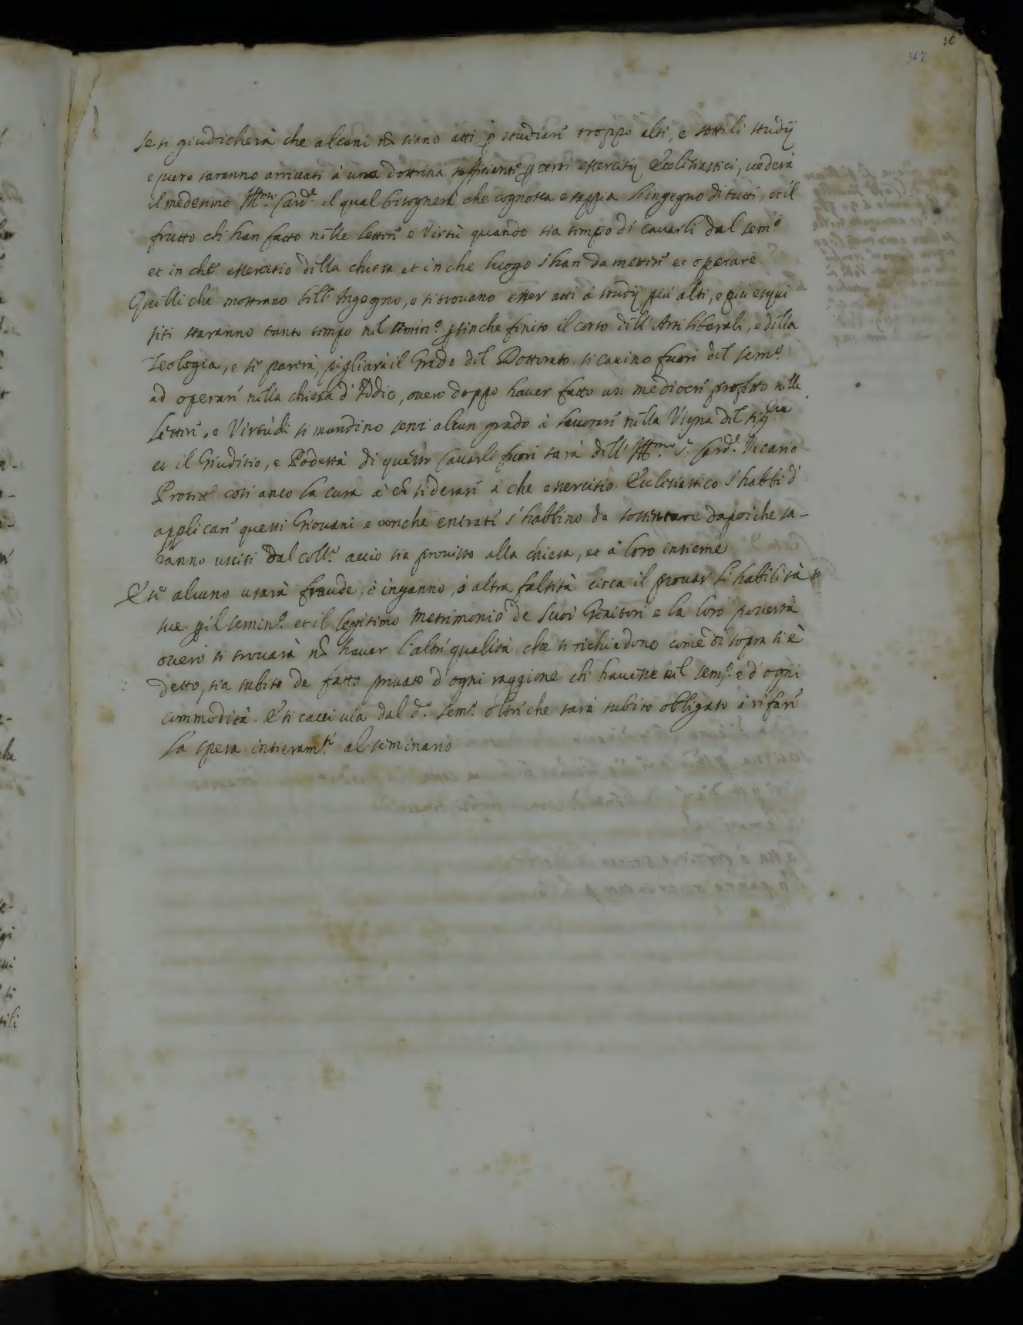 se si giudicherà che alcuni nō siano atti p studiari troppo alti, e sottili studij
e pure saranno arrivati à una dottrina sufficiente p certi essercitij Ecclesiastici, vederà
il medesimo Ill.mo Card.e il qual bisognerà che cognosca e sappia l'ingegno di tutti, et il
frutto ch'han fatto nelle lettere e Virtù quando sia tempo di cavarli dal sem.o
et in che essercitio della chiesa et in che luogo s'han da mettere et operare.
Quelli che mostrano bell'Ingegno, e si trovano esser atti à studij più alti, e più esqui
siti staranno tanto tempo nel semin.o finche finito il corso dell'Arti liberali, e della
Teologia, e se parerà, pigliarà il Grado del Dottorato si cavino fuori del sem.o
ad operare nella chiesa d'Iddio, overo doppo haver fatto un mediocre profitto nelle
lettere, e Virtù si mandino senz'alcun grado à lavorare nella Vigna del Sig.re
et il Giuditio, e Podestà di questo cavarli fuori sarà dell'Ill.mo S.r Card.e Vicario
Protet.e così anco la cura à cōsiderare à che essercitio Ecclesiastico s'habbi d'
applicare questi Giovani e con che entrate s'habbino da sostentare dapoi che sa-
ranno usciti dal coll.o acciò sia provisto alla chiesa, et à loro insieme
E se alcuno usarà fraude, ò inganno, ò altra falsità circa il provar l'habilità
sue p il semin.o et il legitimo Matrimonio de suoi Genitori e la loro povertà
overo si trovarà nō haver l'altre qualità che si richiedono come di sopra si è
detto, sia subito de fatto privato d'ogni raggione ch'havesse nel sem.o e d'ogni
commodità. E si cacci via dal d.o sem.o oltre che sarà subito obligato à rifare
la spesa interam.te al seminario